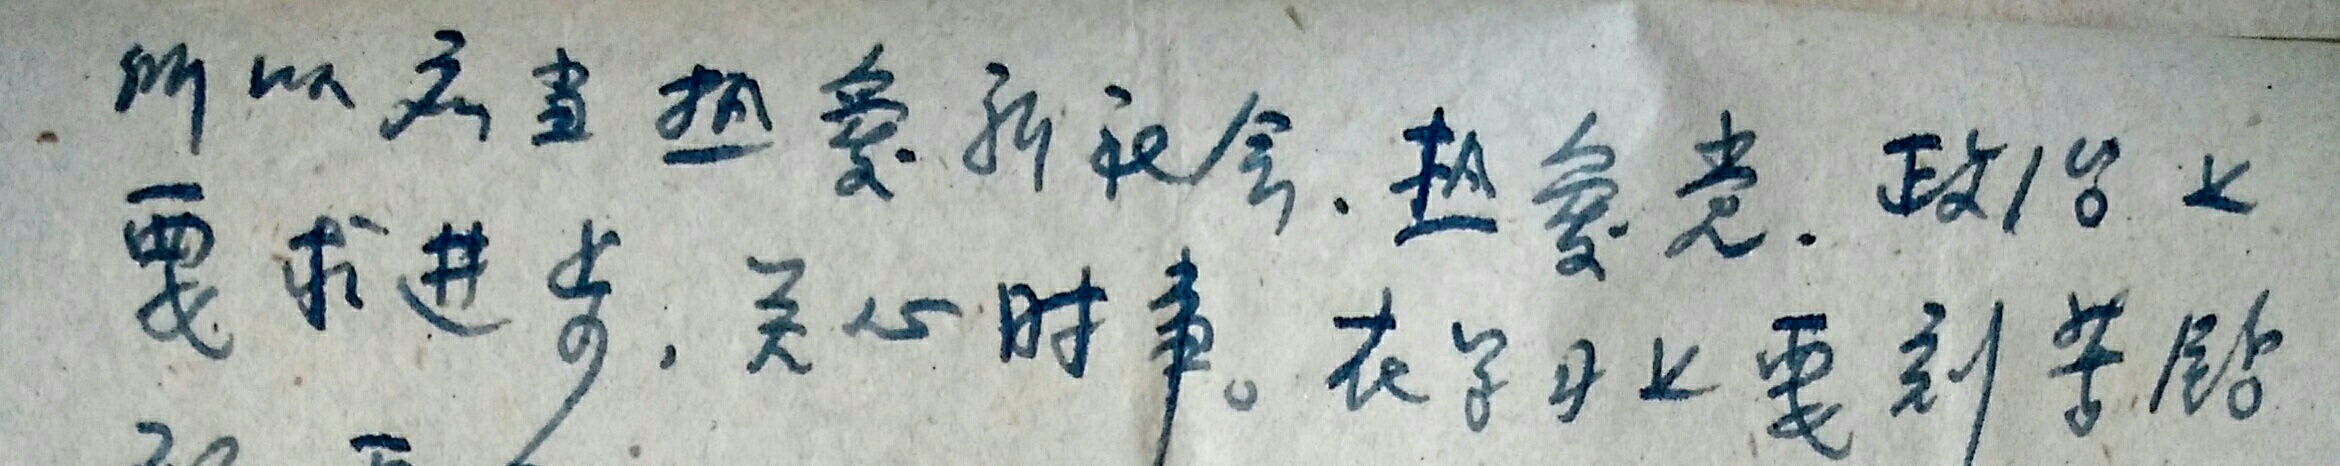 所以应当热爱新社会.热爱党.政治上
要求进步,关心时事。在学习上要刻苦踏